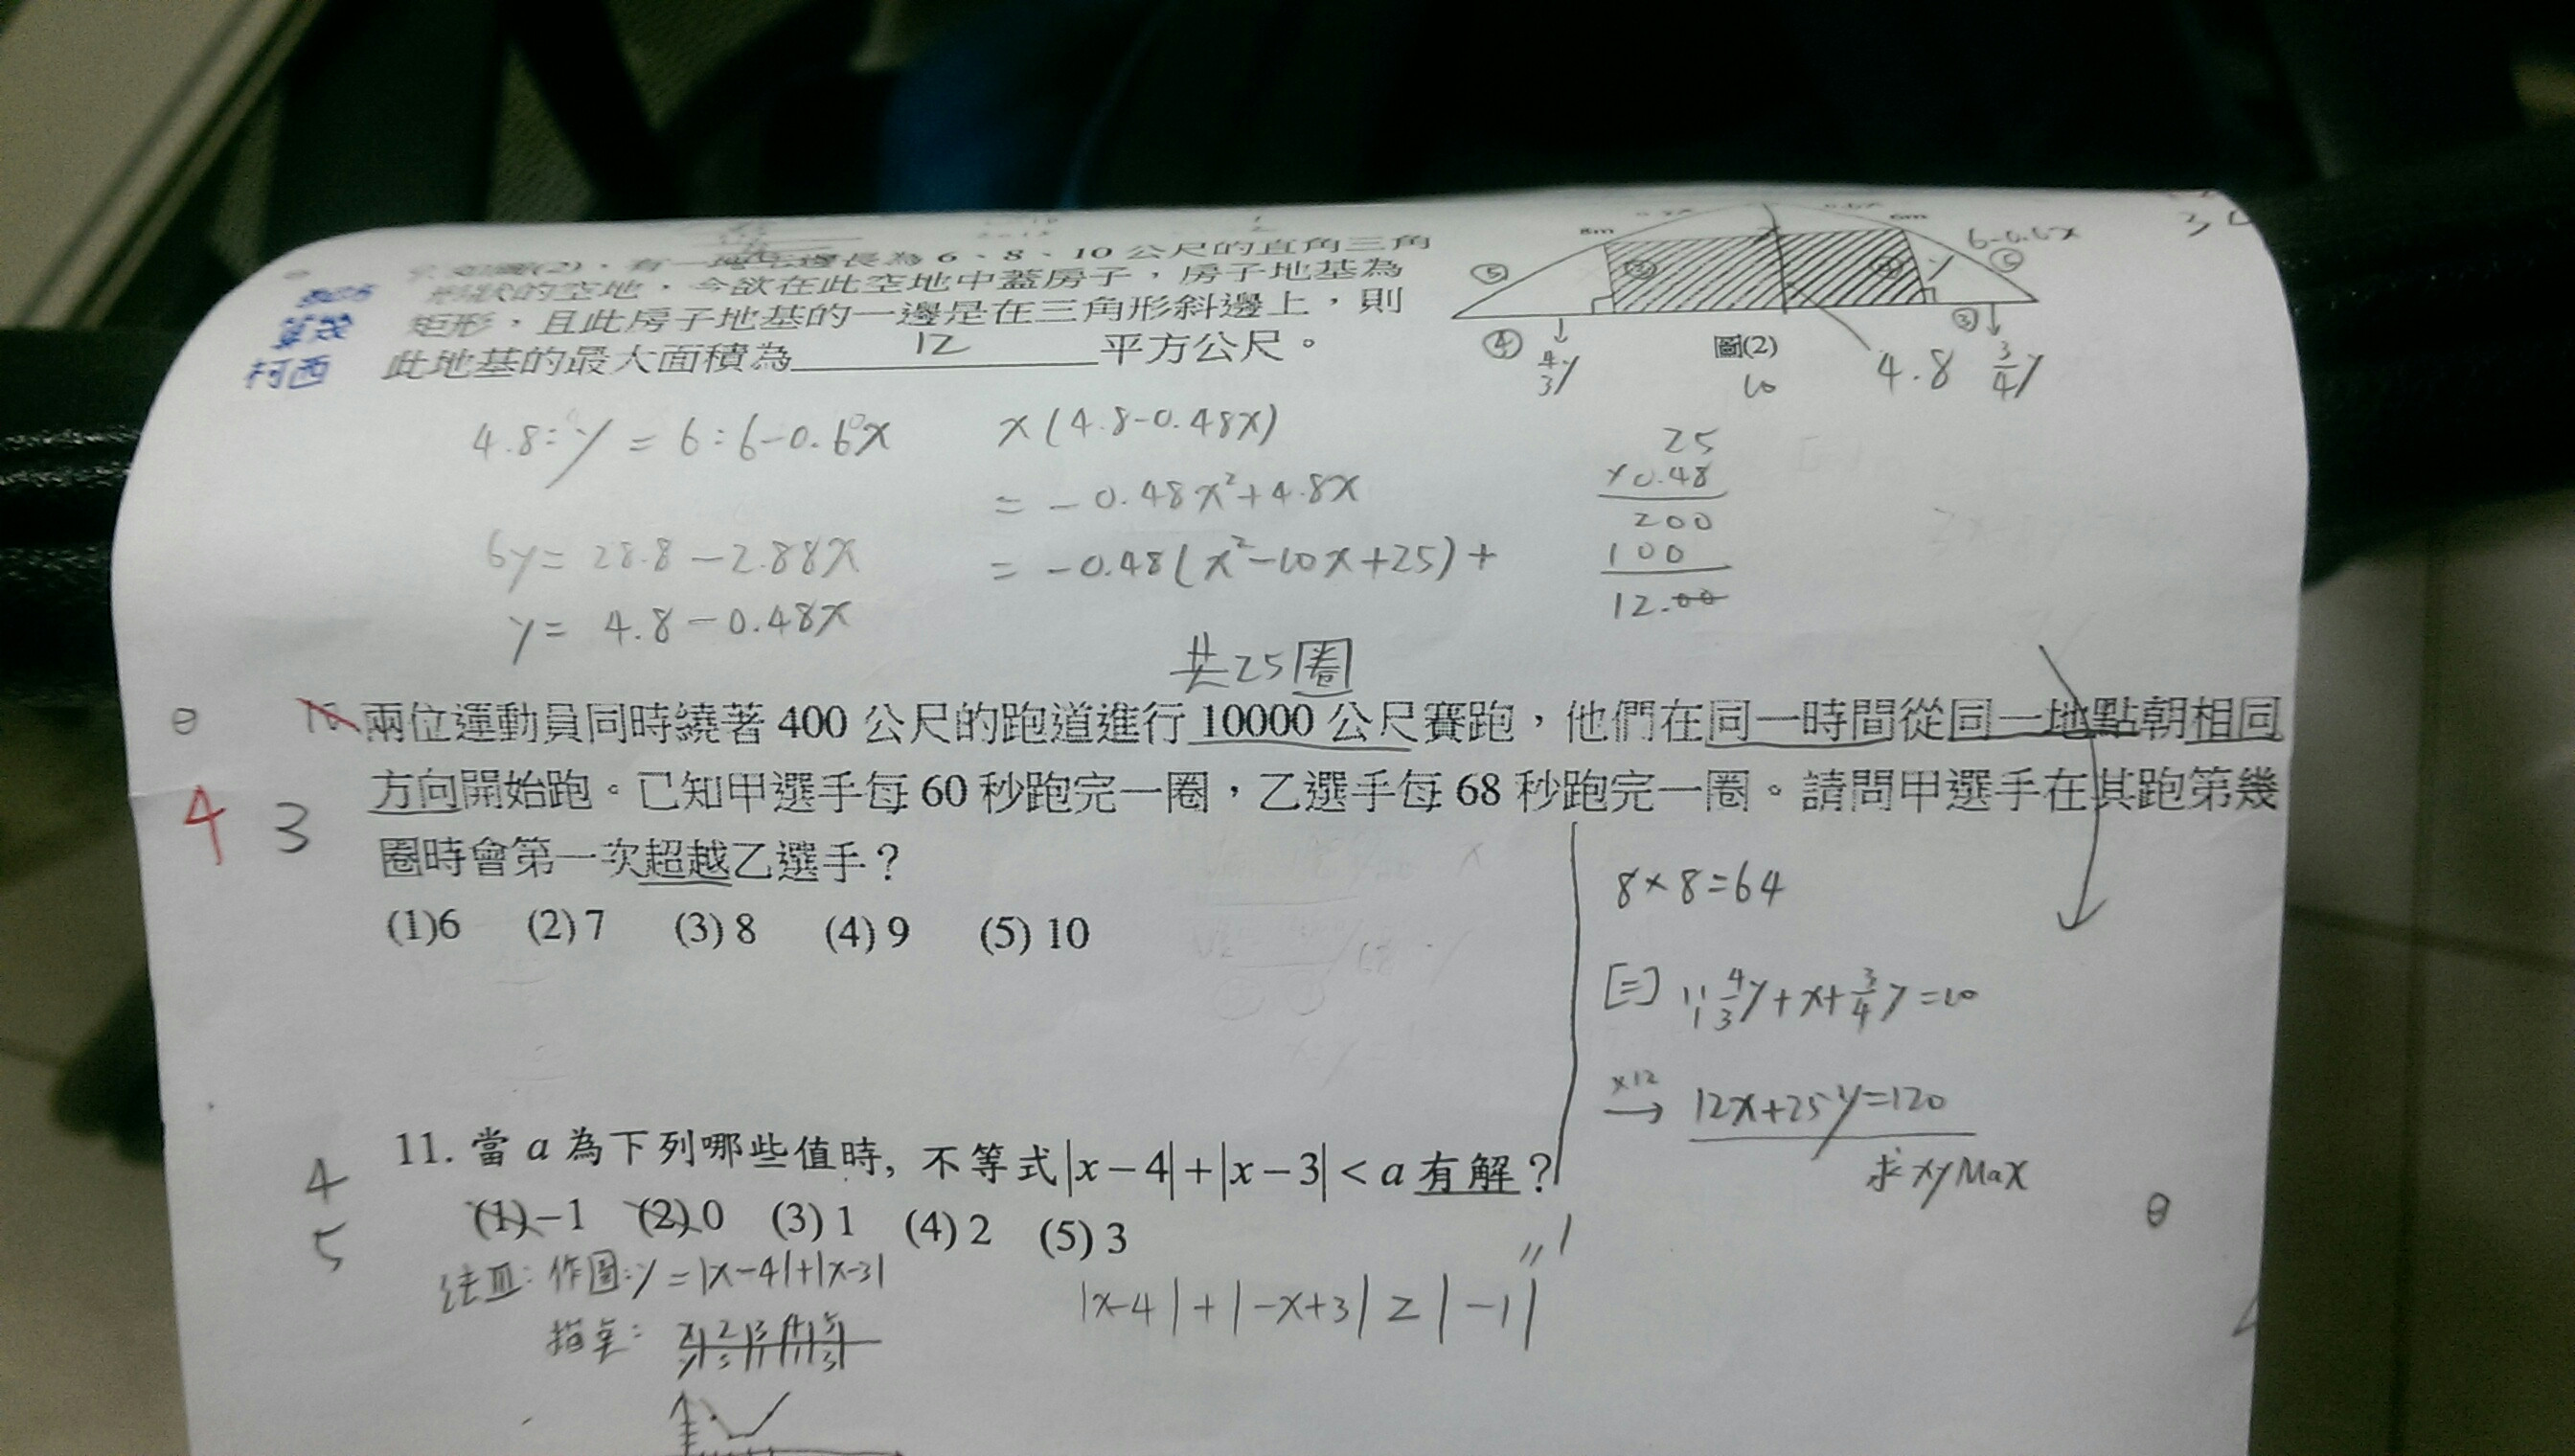 如圖(2),有一塊三邊長為 6、8、10 公尺的直角三角
形狀的空地,今欲在此空地中蓋房子,房子地基為
矩形,且此房子地基的一邊是在三角形斜邊上,則
此地基的最大面積為 12 平方公尺。
算幾
柯西
8m
6m
6-0.6x
⑤
④
③
y
4/3 y
圖(2)
10
4.8
3/4 y
4.8:y = 6:6-0.6x
6y = 28.8 - 2.88x
y = 4.8 - 0.48x
x(4.8-0.48x)
= -0.48x²+4.8x
= -0.48(x²-10x+25)+
25
×0.48
200
100
12.00
共25圈
10. 兩位運動員同時繞著 400 公尺的跑道進行 10000 公尺賽跑,他們在同一時間從同一地點朝相同
方向開始跑。已知甲選手每 60 秒跑完一圈,乙選手每 68 秒跑完一圈。請問甲選手在其跑第幾
圈時會第一次超越乙選手?
4 3
(1)6 (2) 7 (3) 8 (4) 9 (5) 10
8×8=64
[三] 4/3 y + x + 3/4 y = 10
×12 → 12x+25y=120
求xy Max
11. 當 a 為下列哪些值時, 不等式|x-4|+|x-3|<a 有解?
4
5
(1) -1 (2) 0 (3) 1 (4) 2 (5) 3
法III: 作圖: y = |x-4|+|x-3|
描點:
x 2 3 4 5
y 3 1 1 3
|x-4|+|-x+3| ≥ |-1|
1